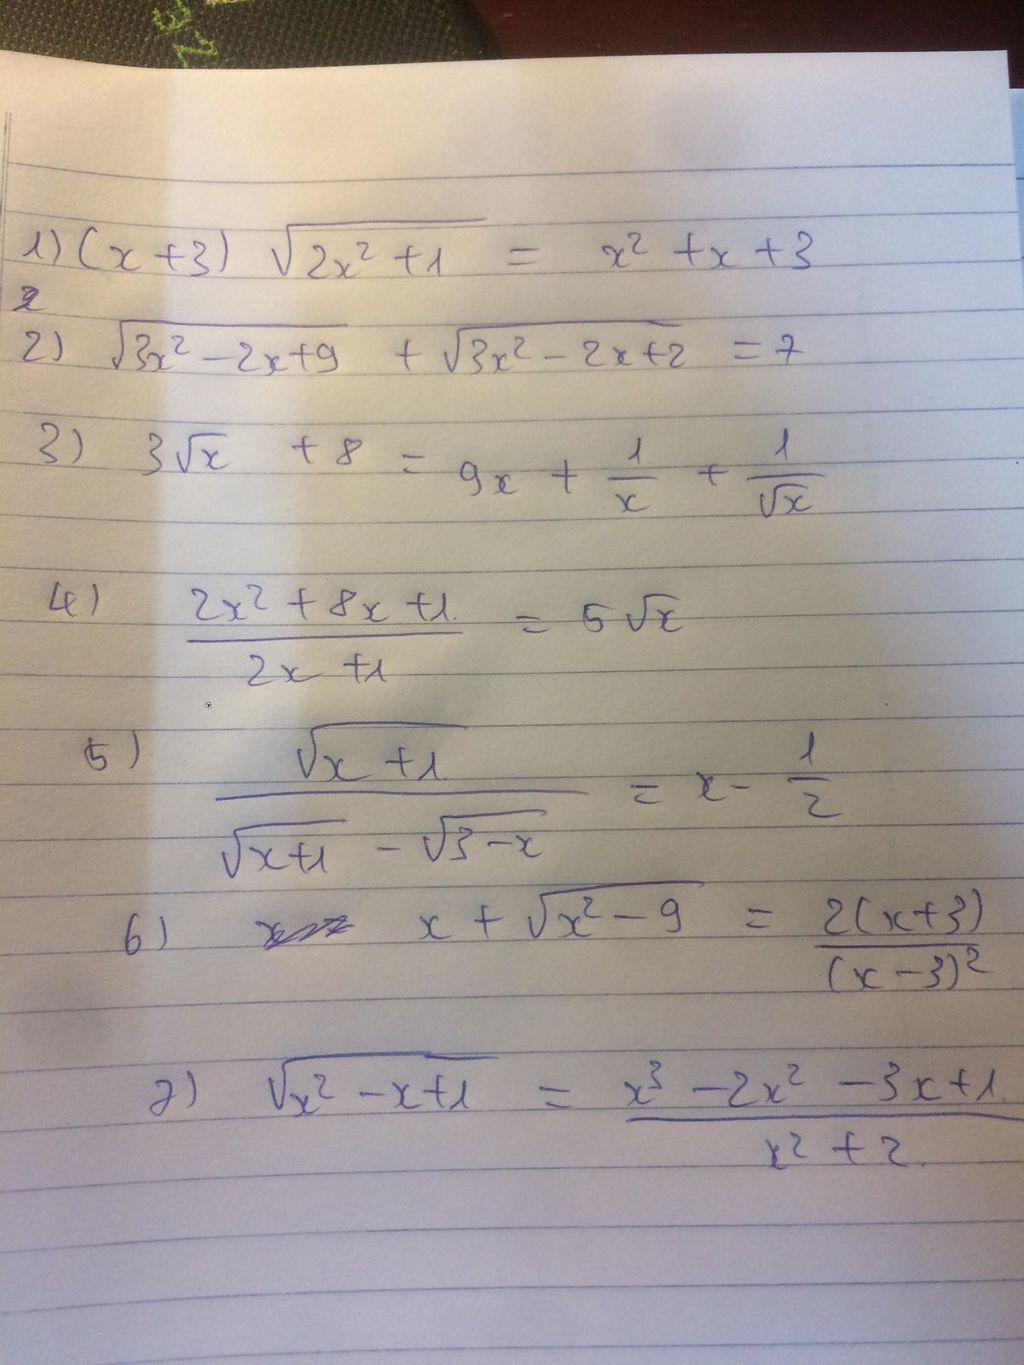 1) (x+3) √(2x² + 1) = x² + x + 3
2
2) √(3x² - 2x + 9) + √(3x² - 2x + 2) = 7
3) 3√x + 8 = 9x + 1/x + 1/√x
4) (2x² + 8x + 1)/(2x + 1) = 5√x
5) √(x+1)/(√(x+1) - √(3-x)) = x - 1/2
6) x + √(x² - 9) = 2(x+3)/(x-3)²
7) √(x² - x + 1) = (x³ - 2x² - 3x + 1)/(x² + 2)